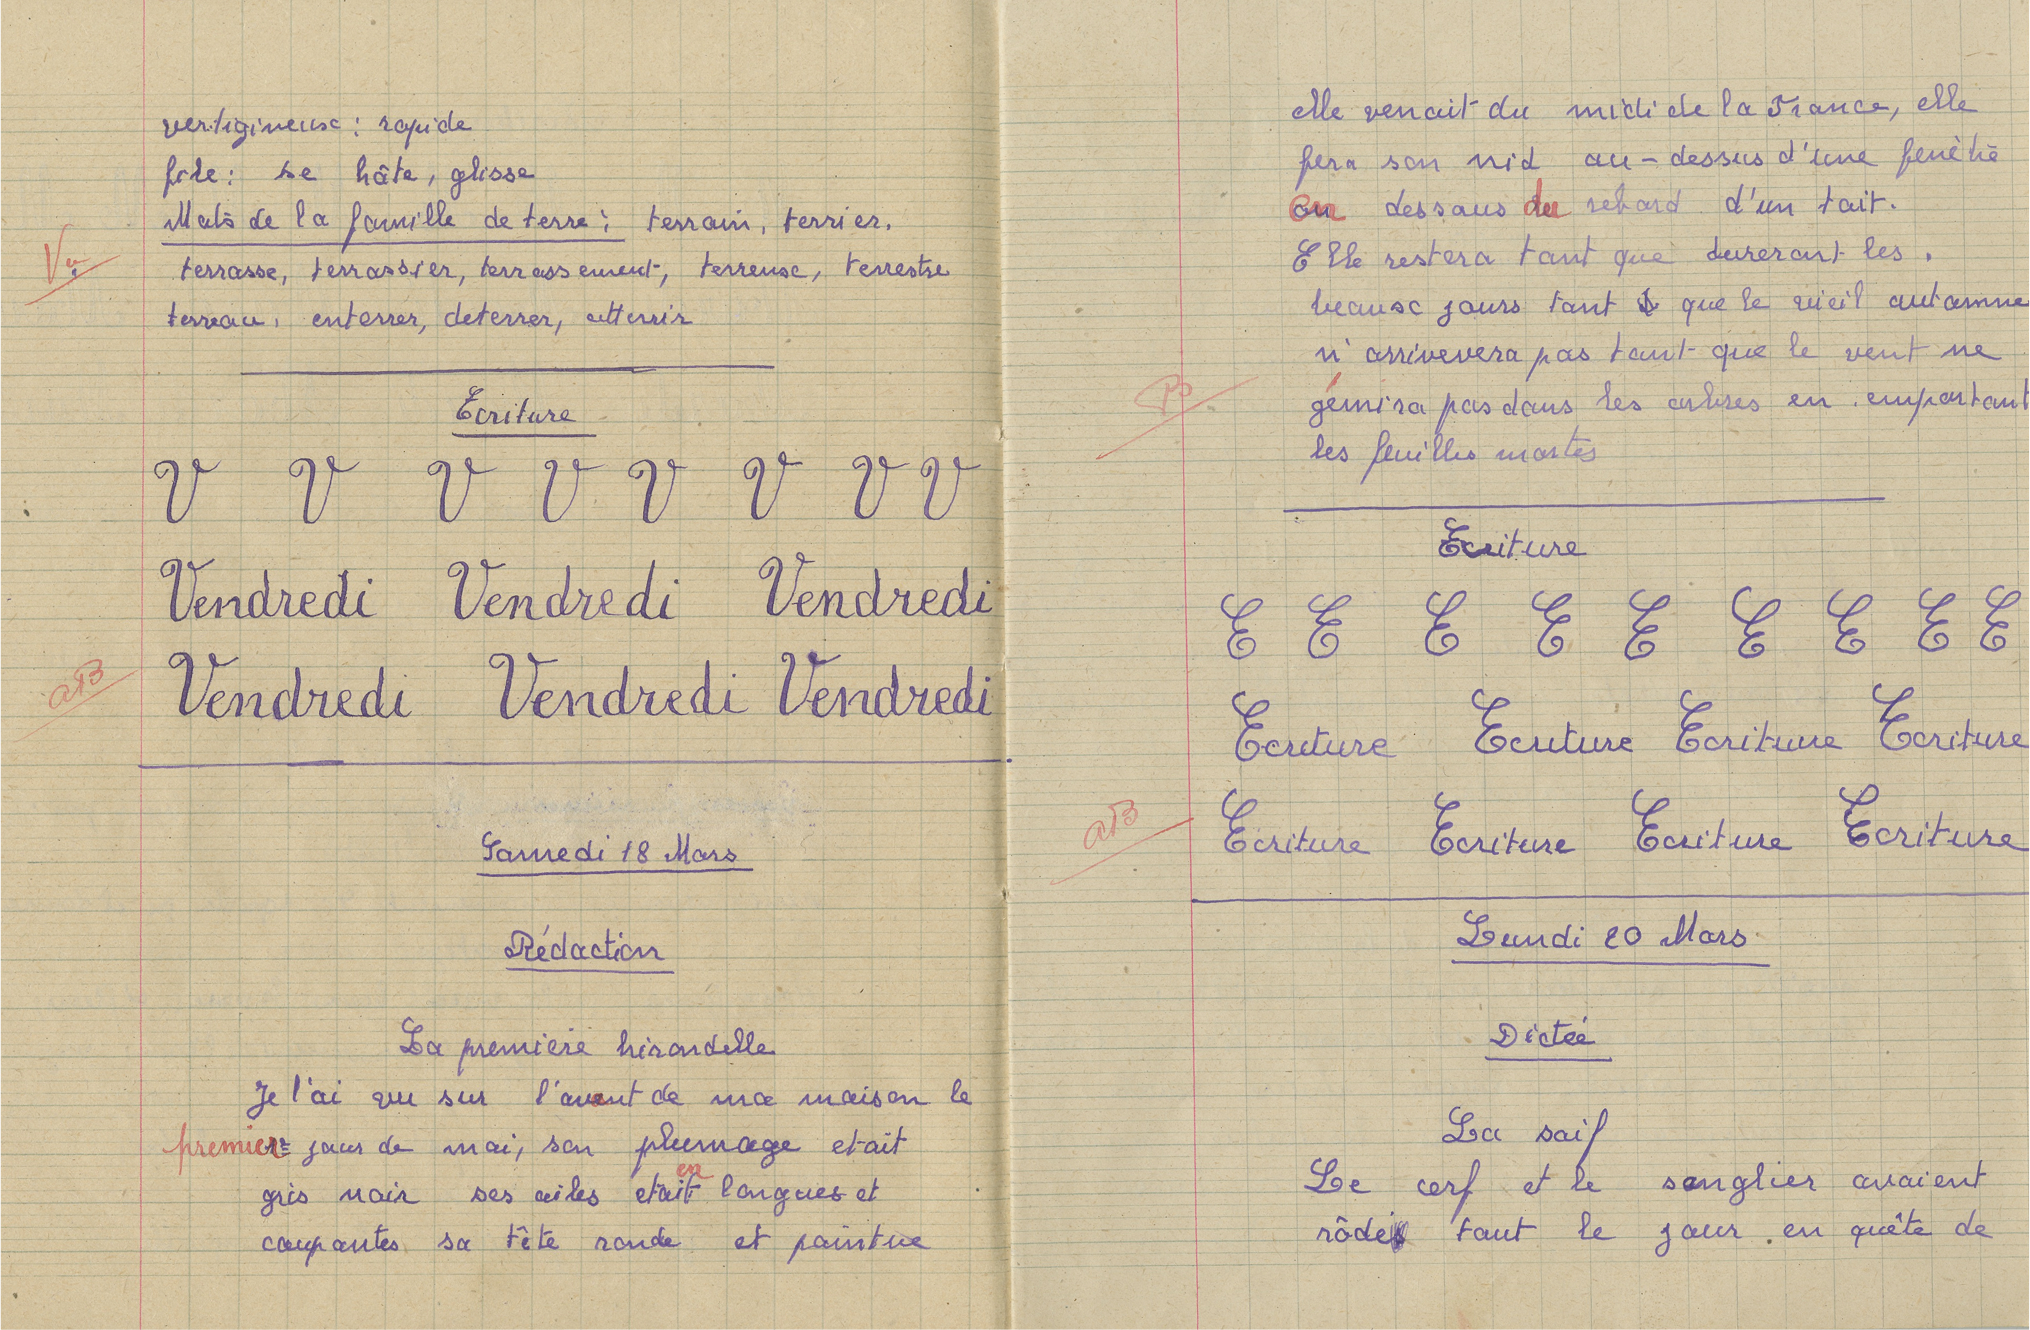 vertigineuse : rapide
file : se hâte, glisse
Mots de la famille de terre : terrain, terrier,
Vu
terrasse, terrassier, terrassement, terreuse, terrestre
terreau, enterrer, deterrer, atterrir
Ecriture
V V V V V V V V
Vendredi Vendredi Vendredi
aB
Vendredi Vendredi Vendredi
Samedi 18 Mars
Rédaction
La première hirondelle
Je l'ai vu sur l'avent de ma maison le
premier jour de mai, son plumage etait
en
gris noir ses ailes etait longues et
coupantes sa tête ronde et pointue
elle venait du midi de la France, elle
fera son nid au-dessus d'une fenêtre
ou dessous du rebord d'un toit.
Elle restera tant que dureront les.
beause jours tant que le vieil automne
n'arrivevera pas tant que le vent ne
gémira pas dans les arbres en emportant
les feuilles mortes
Ecriture
E E E E E E E E E
Ecriture Ecriture Ecriture Ecriture
aB
Ecriture Ecriture Ecriture Ecriture
Lundi 20 Mars
Dictée
La soif
Le cerf et le sanglier avaient
rôdé tout le jour en quête de